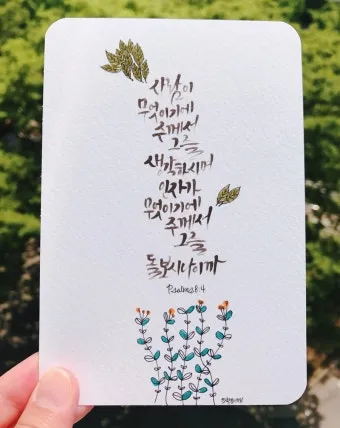 사람이
무엇이기에
주께서
그를
생각하시며
인자가
무엇이기에
주께서
그를
돌보시나이까
Psalms 8:4